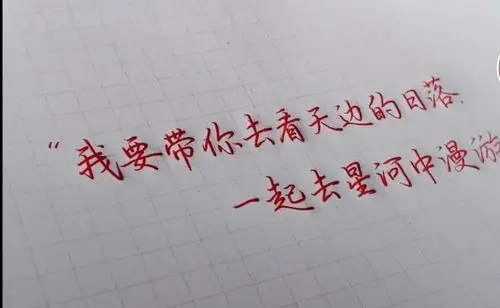 “我要带你去看天边的日落.
一起去星河中漫游